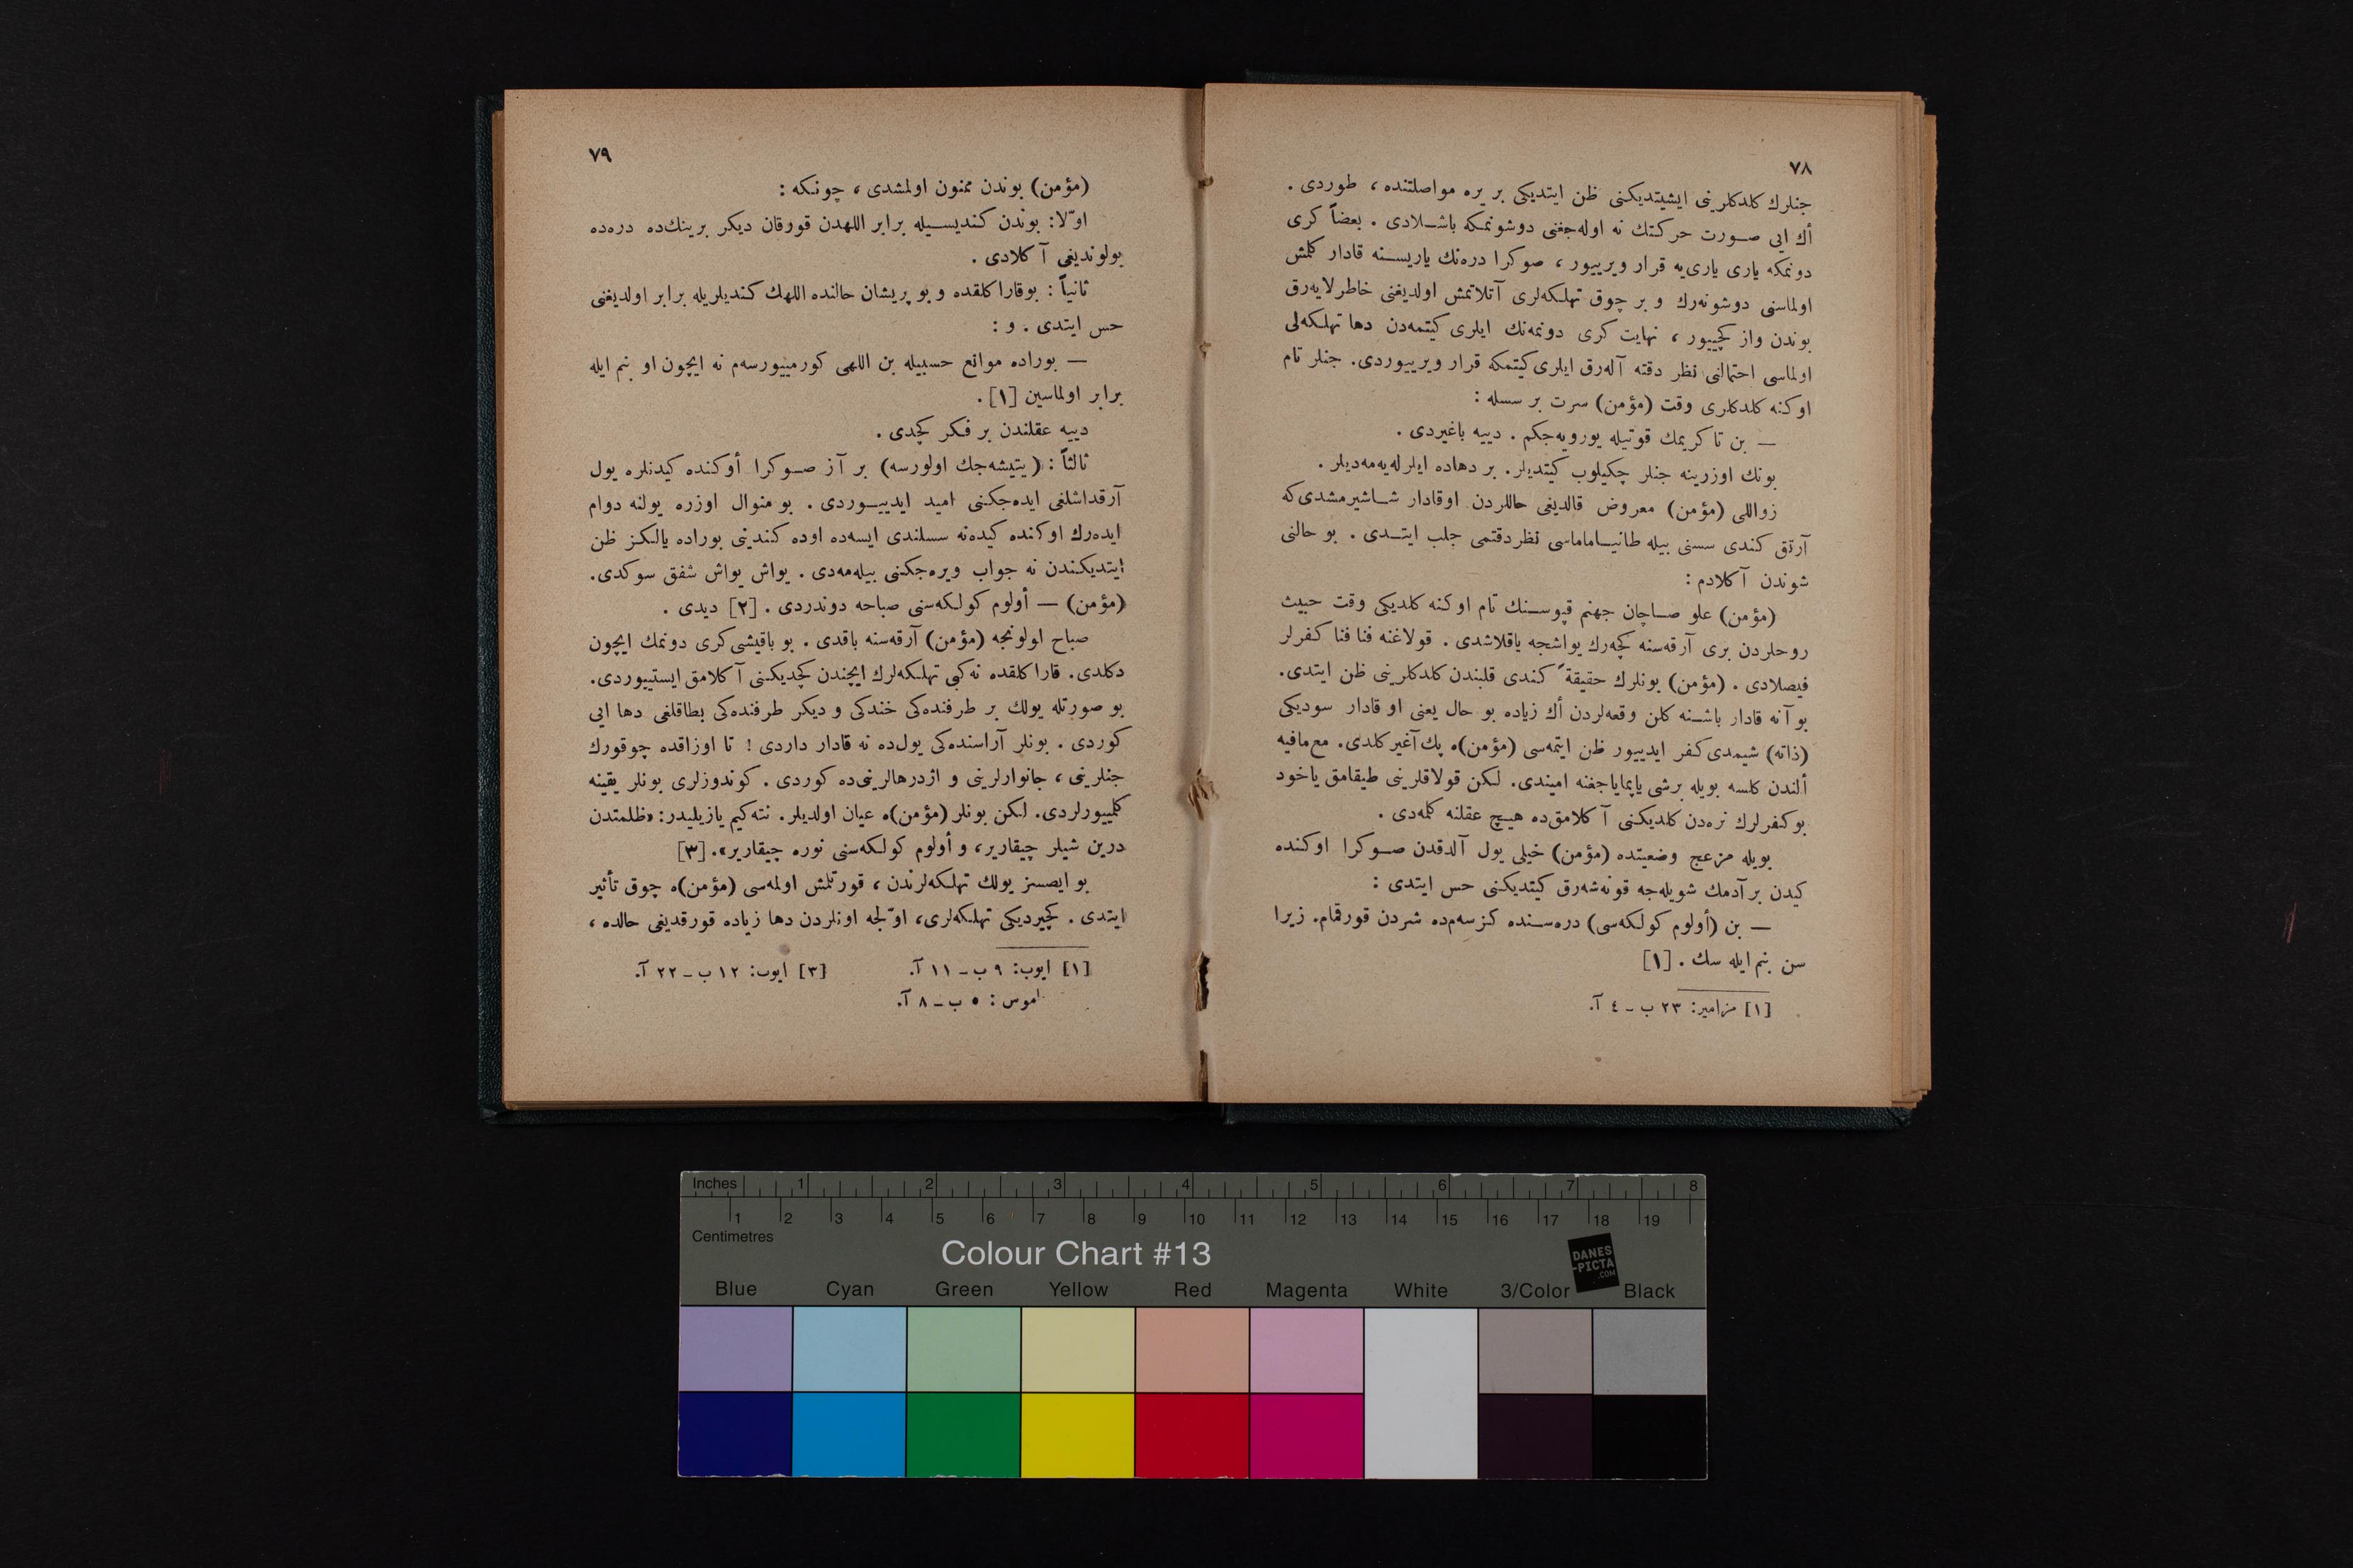 ٧٨
جنلرك كلدكلرینی ایشیتدیكنی ظن ایتدیكی بر یره مواصلتنده ، طوردی .
أك ایی صورت حركتك نه اوله‌جغنی دوشونمكه باشلادی . بعضاً كری
دونمكه یاری یاری‌یه قرار ویرییور ، صوكرا دره‌نك یاریسنه قادار كلمش
اولماسنی دوشونه‌رك و بر چوق تهلكه‌لری آتلاتمش اولدیغنی خاطرلایه‌رق
بوندن واز كچییور ، نهایت كری دونمه‌نك ایلری كیتمه‌دن دها تهلكه‌لی
اولماسی احتمالنی نظر دقته آله‌رق ایلری كیتمكه قرار ویرییوردی. جنلر تام
اوكنه كلدكلری وقت (مؤمن) سرت بر سسله :
— بن تاكریمك قوتیله یورویه‌جكم . دییه باغیردی .
بونك اوزرینه جنلر چكیلوب كیتدیلر. بر دهاده ایلرله‌یه‌مه‌دیلر .
زواللی (مؤمن) معروض قالدیغی حاللردن اوقادار شاشیرمشدی‌كه
آرتق كندی سسنی بیله طانیاماماسی نظردقتمی جلب ایتدی . بو حالنی
شوندن آكلادم :
(مؤمن) علو صاچان جهنم قپوسنك تام اوكنه كلدیكی وقت حبیث
روحلردن بری آرقه‌سنه كچه‌رك یواشجه یاقلاشدی . قولاغنه فنا فنا كفرلر
فیصلادی . (مؤمن) بونلرك حقیقةً كندی قلبندن كلدكلرینی ظن ایتدی.
بو آنه قادار باشنه كلن وقعه‌لردن أك زیاده بو حال یعنی او قادار سودیكی
(ذاته) شیمدی كفر ایدییور ظن ایتمه‌سی (مؤمن)ه پك آغیر كلدی. مع‌مافیه
ألندن كلسه بویله برشی یاپمایاجغنه امیندی. لكن قولاقلرینی طیقامق یاخود
بوكفرلرك نره‌دن كلدیكنی آكلامق‌ده هیچ عقلنه كلمه‌دی .
بویله مزعج وضعیتده (مؤمن) خیلی یول آلدقدن صوكرا اوكنده
كیدن بر آدمك شویله‌جه قونه‌شه‌رق كیتدیكنی حس ایتدی :
— بن (أولوم كولكه‌سی) دره‌سنده كزسه‌م‌ده شردن قورقمام. زیرا
سن بنم ایله سك . [١]
[١] مزامیر: ٢٣ ب ـ ٤ آ.
٧٩
(مؤمن) بوندن ممنون اولمشدی ، چونكه :
اوّلا: بوندن كندیسیله برابر اللهدن قورقان دیكر برینك‌ده دره‌ده
بولوندیغی آكلادی .
ثانیاً : بوقاراكلقده و بو پریشان حالنده اللهك كندیلریله برابر اولدیغنی
حس ایتدی . و :
— بوراده موانع حسبیله بن اللهی كورمییورسه‌م نه ایچون او بنم ایله
برابر اولماسین [١] .
دییه عقلندن بر فكر كچدی .
ثالثاً : (یتیشه‌جك اولورسه) بر آز صوكرا أوكنده كیدنلره یول
آرقداشلغی ایده‌جكنی امید ایدییوردی . بو منوال اوزره یولنه دوام
ایده‌رك اوكنده كیده‌نه سسلندی ایسه‌ده اوده كندینی بوراده یالكز ظن
ایتدیكندن نه جواب ویره‌جكنی بیله‌مه‌دی . یواش یواش شفق سوكدی.
(مؤمن) — أولوم كولكه‌سنی صباحه دوندردی . [٢] دیدی .
صباح اولونجه (مؤمن) آرقه‌سنه باقدی . بو باقیشی كری دونمك ایچون
دكلدی. قاراكلقده نه‌كبی تهلكه‌لرك ایچندن كچدیكنی آكلامق ایستییوردی.
بو صورتله یولك بر طرفنده‌كی خندكی و دیكر طرفنده‌كی بطاقلغی دها ایی
كوردی . بونلر آراسنده‌كی یول‌ده نه قادار داردی ! تا اوزاقده چوقورك
جنلرینی ، جانوارلرینی و اژدرهالرینی‌ده كوردی . كوندوزلری بونلر یقینه
كلمییورلردی. لكن بونلر (مؤمن)ه عیان اولدیلر. نته‌كیم یازیلیدر: «ظلمتدن
درین شیلر چیقاریر، و أولوم كولكه‌سنی نوره چیقاریر». [٣]
بو ایصسز یولك تهلكه‌لرندن ، قورتلمش اولمه‌سی (مؤمن)ه چوق تأثیر
ایتدی . كچیردیكی تهلكه‌لری، اوّلجه اونلردن دها زیاده قورقدیغی حالده ،
[١] ایوب: ٩ ب ـ ١١ آ.
[٣] ایوب: ١٢ ب ـ ٢٢ آ.
اموس : ٥ ب ـ ٨ آ.
Inches 1 2 3 4 5 6 7 8
1 2 3 4 5 6 7 8 9 10 11 12 13 14 15 16 17 18 19
Centimetres
Colour Chart #13
DANES
-PICTA
.COM
Blue Cyan Green Yellow Red Magenta White 3/Color Black